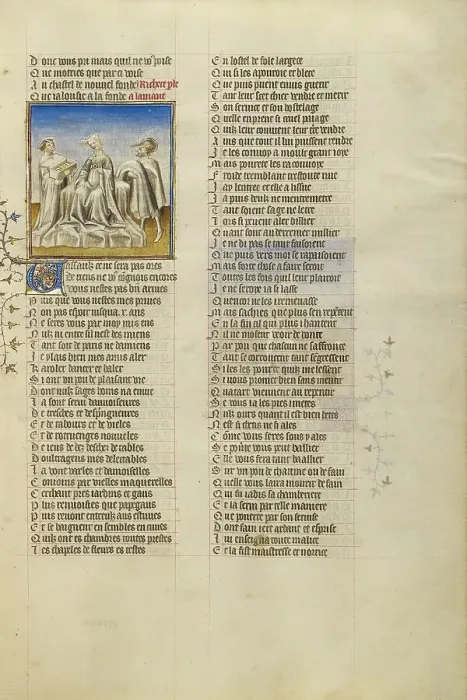 Donc vous pri mais quil ne vous poise
Que moustrés que par ci voise
Au chastel de nouvel fonde Richece ple
Que ialousie a la fonde a lamant
Vassaus ce ne sera pas ores
de riens ne vous congnois encores
vous nestes pas ci arrives
Puis que vous nestes mes prives
Non pas espoir iusqua .x. ans
Ne seres vous par moy mis ens
Nulz ni entre sil nest des miens
Tant soit de paris ne damiens
Ie y lais bien mes amis aler
Karoler dancer et baler
Si ont un pou de plaisant vie
Dont nulz sages homs na envie
La sont servi
De tresches et
Et de tabours et de vieles
Et de rotruenges nouvelles
De ieus de dez desches de tables
Doultrageus mes delectables
La vont varles et damoiselles
Conioins par vielles maquerelles
Cerchant pres iardins et gaus
Plus renvoisies que papegaus
Puis revont entreulz aus estuves
Et se baignent ensembles en cuves
Quilz ont es chambres toutes prestes
Les chapeles de fleurs es testes
En lostel de fole largece
Qui si les apovroie et blece
Que puis pueent envis guerir
Tant leur scet chier vendre et merir
Son service et son hostelage
Quelle en prent si cruel paiage
Quilz leur convient leur terre vendre
Ains que tout il lui puissent rendre
Ie les convoy a moult grant ioye
Mais povrete les raconvoye
Froide tremblant trestoute nue
Iay lentree et elle a lissue
Ia puis deulz ne mentremetre
Tant soient sage ne letre
Lors si pueent aler billier
Quant sont au derrenier millier
Ie ne di pas se tant faisoient
Que puis vers moy se rapaisoient
Mais forte chose a faire seroit
Toutes les fois quil leur plairoit
Ie ne seroye ia si lasse
Quencor ne les
Mais sachies que plus sen repentent
En la fin cil qui plus i hantent
Nil ne mosent veoir de honte
Par pou que chascun ne
Tant se corroucent tant sengressent
Si les les pour ce quilz me lessent
Si vous promet bien sans mentir
Qua tart viennent au repentir
Se vous ia les pies i metes
Nulz ours quant il est bien betes
Nest si chetis ne si ales
Comme vous seres sous y ales
Se povrete vous peut baillier
Elle vous fera tant baillier
Sur un pou de chaume ou de fain
Quelle vous laira mourir de fain
Qui fu iadis sa chamberiere
Et la servi par telle maniere
Que povrete par son servise
Dont faim iert ardant et esprise
Lui enseigna toute malice
Et la fist maistresse et norrice